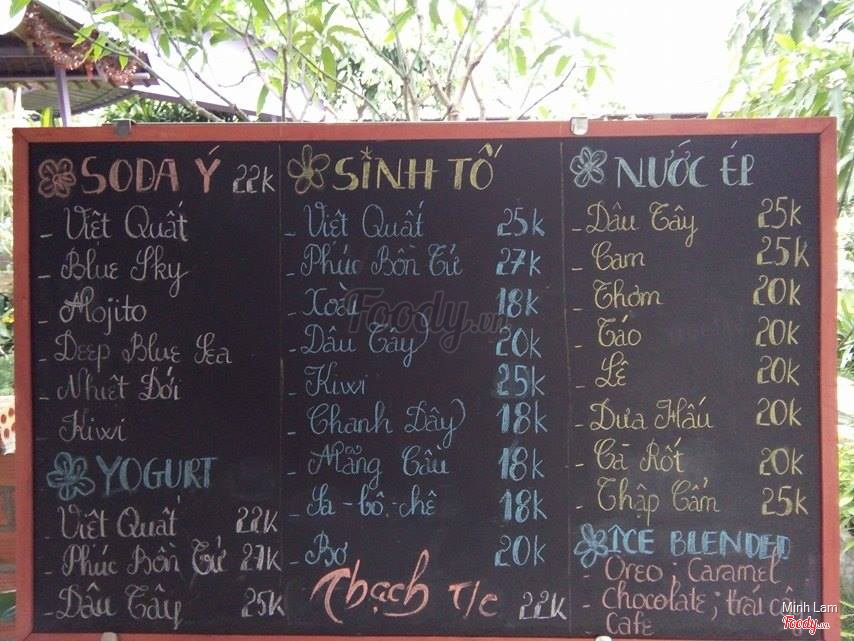 SODA Ý 22K
- Việt Quất
- Blue Sky
- Mojito
- Deep Blue Sea
- Nhiệt Đới
- Kiwi
YOGURT
- Việt Quất 22K
- Phúc Bồn Tử 27K
- Dâu Tây 25K
SINH TỐ
- Việt Quất 25K
- Phúc Bồn Tử 27K
- Xoài 18K
- Dâu Tây 20K
- Kiwi 25K
- Chanh Dây 18K
- Mãng Cầu 18K
- Sa-bô-chê 18K
- Bơ 20K
Thạch T/C 22K
NƯỚC ÉP
- Dâu Tây 25K
- Cam 25K
- Thơm 20K
- Táo 20K
- Lê 20K
- Dưa Hấu 20K
- Cà Rốt 20K
- Thập Cẩm 25K
ICE BLENDED
- Oreo; Caramel
- Chocolate; trái cây
Cafe
Foody.vn
Minh Lam
Foody.vn